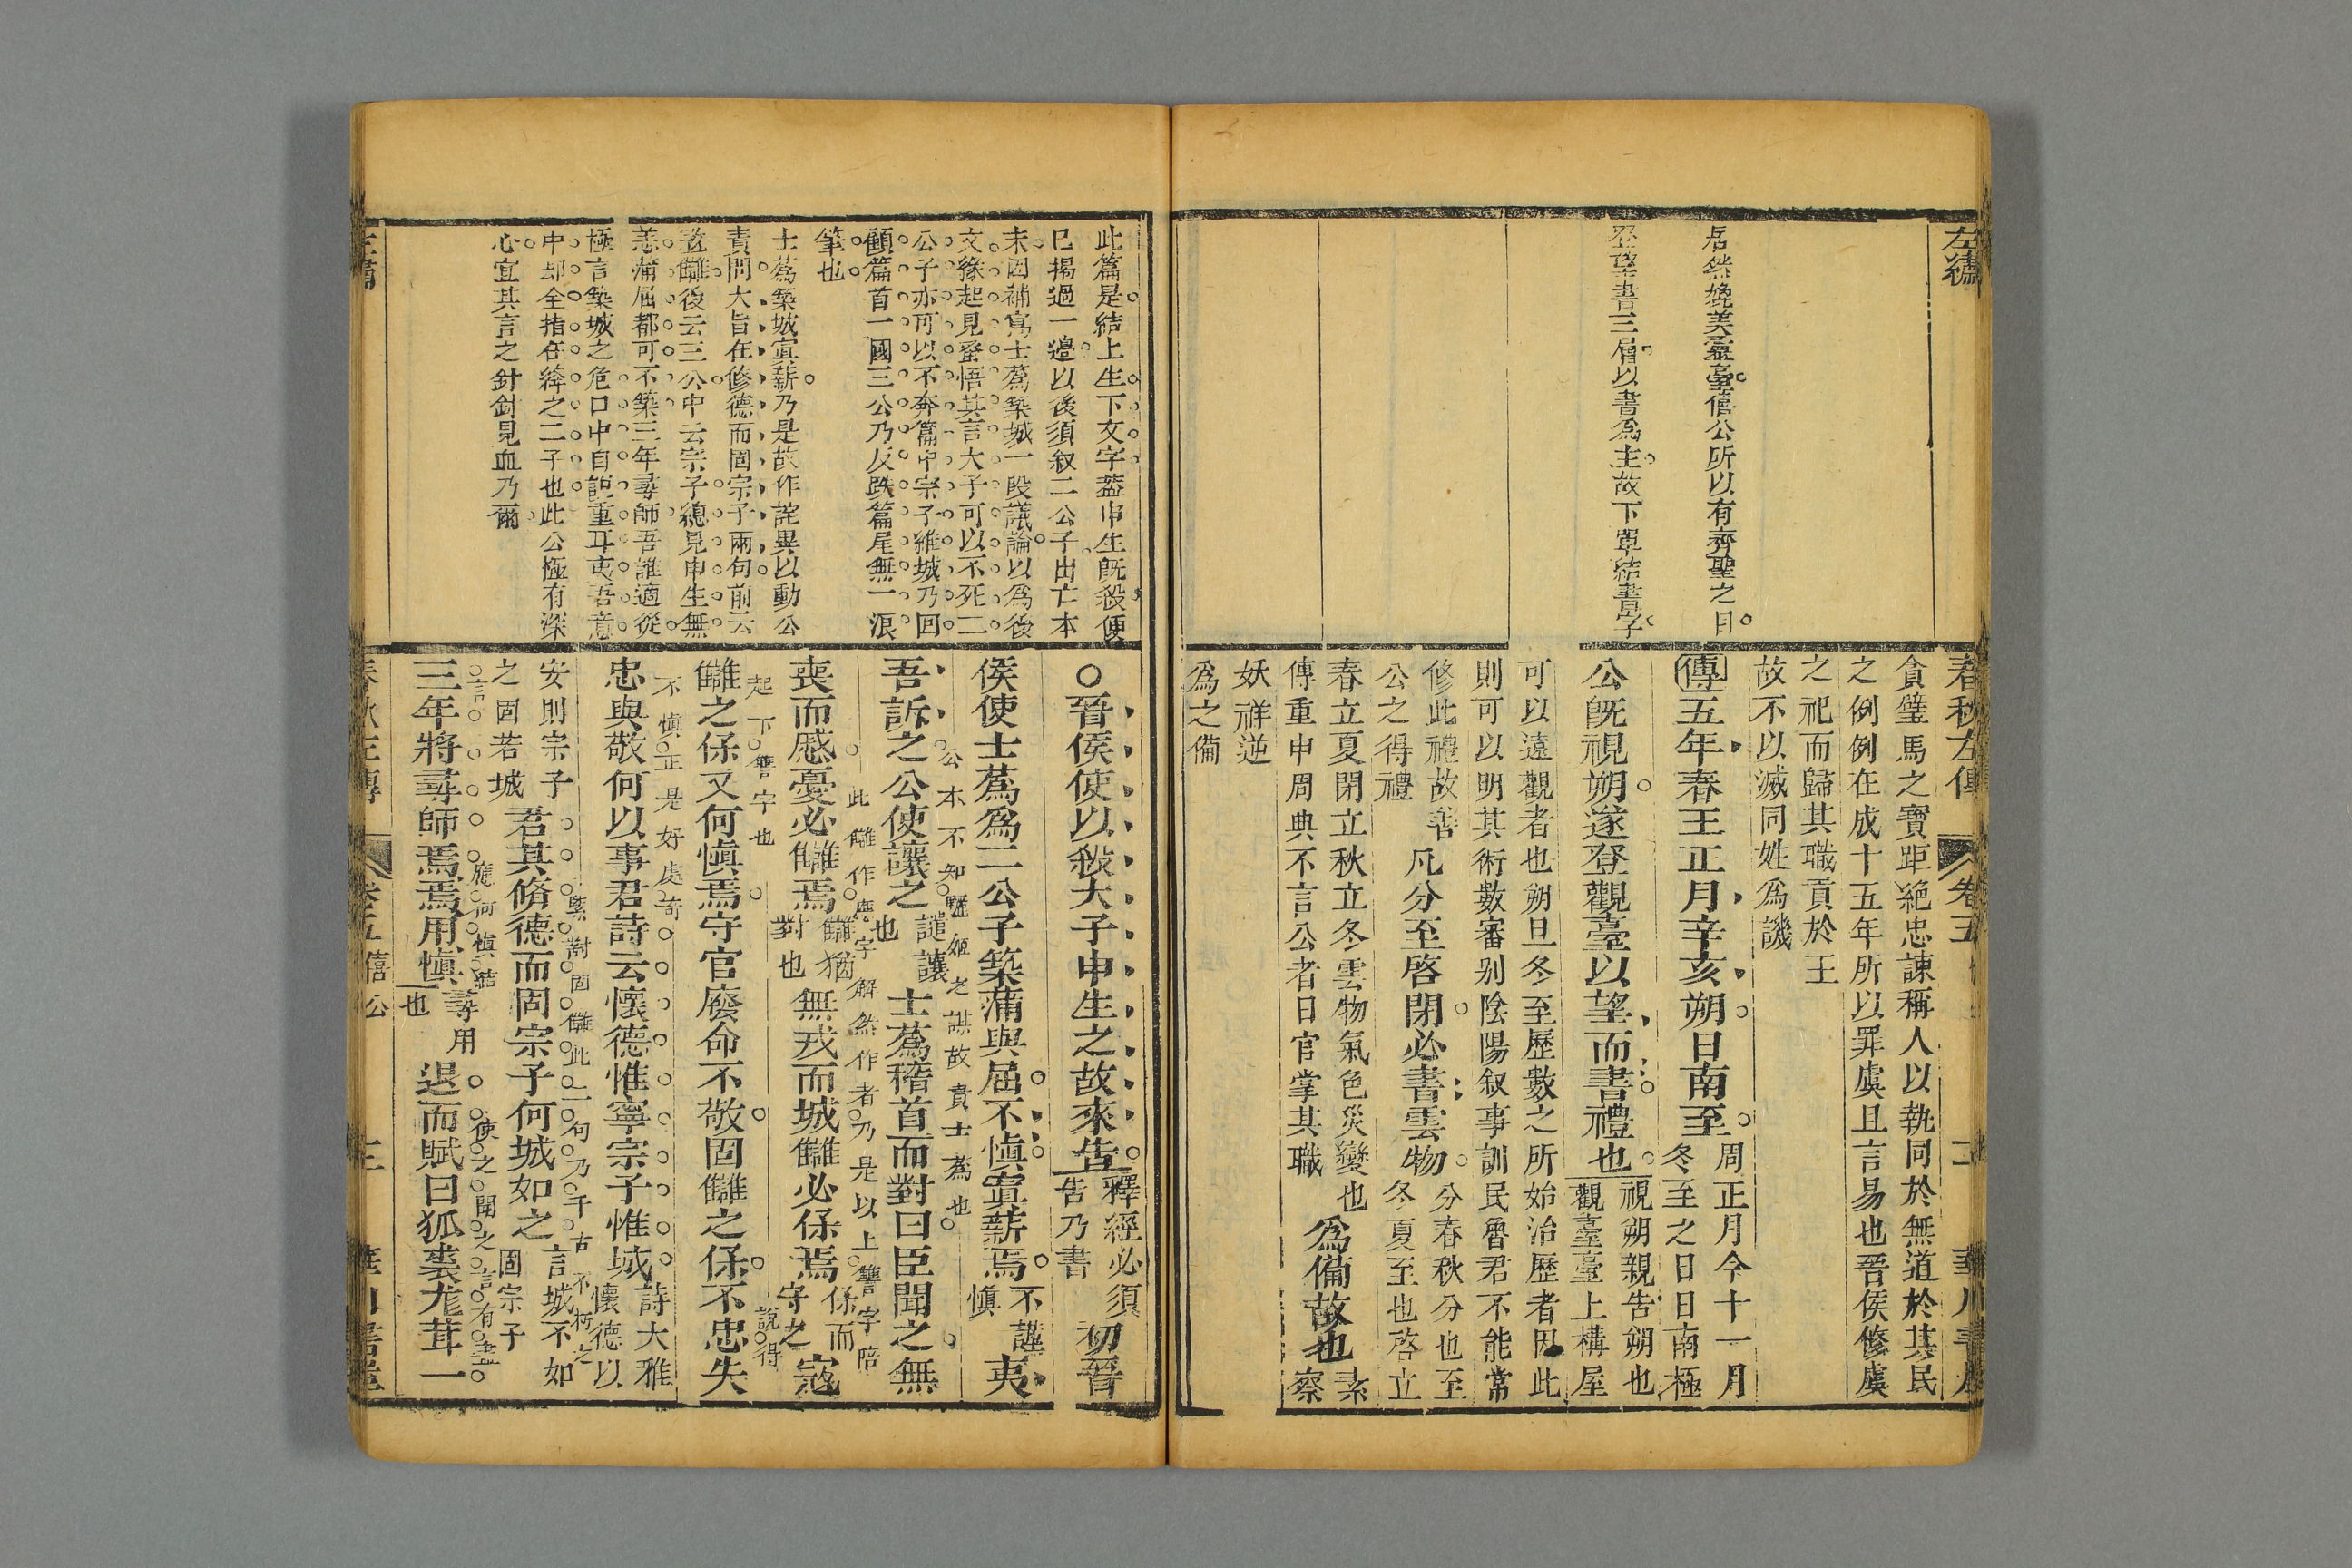 左繡
居然媲美臺臺僖公所以有齊聖之目
登望書三層以書爲主故下單結書字
春秋左傳
卷五
貪璧馬之寶距絕忠諫稱人以執同於無道於其民
之例例在成十五年所以罪虞且言易也晉侯修虞
之祀而歸其職貢於王
故不以滅同姓爲譏
傳五年春王正月辛亥朔日南至周正月今十一月
冬至之日日南極
公旣視朔遂登觀臺以望而書禮也視朔親告朔也
觀臺臺上構屋
可以遠觀者也朔旦冬至歷數之所始治歷者因此
則可以明其術數審別陰陽叙事訓民魯君不能常
修此禮故善
公之得禮
凡分至啓閉必書雲物分春秋分也至
冬夏至也啓立
春立夏閉立秋立冬雲物氣色災變也
傳重申周典不言公者日官掌其職
爲備故也素察
妖祥逆
爲之備
此篇是結上生下文字葢申生旣殺便
已揭過一邊以後須叙二公子出亡本
末因補寫士蒍築城一段議論以爲後
文緣起見蚤悟其言大子可以不死二
公子亦可以不奔篇中宗子維城乃回
顧篇首一國三公乃反跌篇尾無一浪
筆也
士蒍築城寘薪乃是故作詫異以動公
責問大旨在修德而固宗子兩句前云
置讎後云三公中云宗子總見申生無
恙蒲屈都可不築三年尋師吾誰適從
極言築城之危口中自說重耳夷吾意
中却全指在絳之二子也此公極有深
心宜其言之針針見血乃爾
○晉侯使以殺大子申生之故來告釋經必須
告乃書
初晉
侯使士蒍爲二公子築蒲與屈不愼寘薪焉不謹
愼
夷
公本不知驪姬之謀故責士蒍也
吾訴之公使讓之譴讓
也
士蒍稽首而對曰臣聞之無
此讎作應字解然作者乃是以上讐字陪
喪而慼憂必讎焉讎猶
對也
無戎而城讎必保焉保而
守之
寇
起下讐字也
說得
讎之保又何愼焉守官廢命不敬固讎之保不忠失
不愼正是好處奇
忠與敬何以事君詩云懷德惟寧宗子惟城詩大雅
懷德以
緊對固讎此二句乃千古不朽之
安則宗子
之固若城
君其脩德而固宗子何城如之言城不如
固宗子
應何愼結
使之聞之言有盡
言
三年將尋師焉焉用愼尋用
也
退而賦曰狐裘尨茸一
卷五 僖公